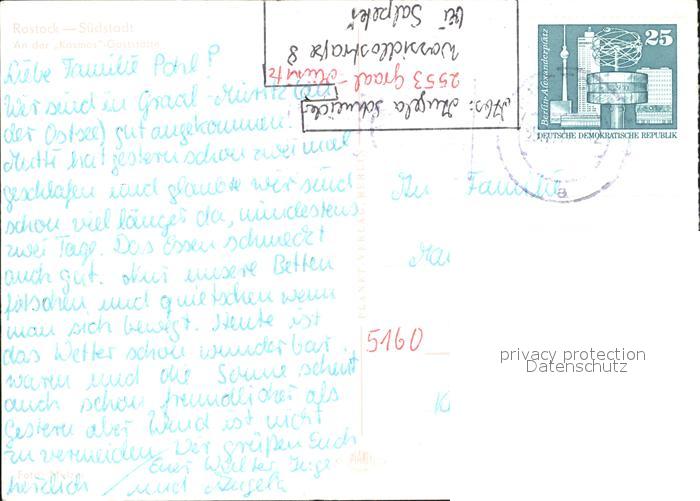 Rostock — Südstadt
An der „Kosmos"-Gaststätte
Liebe Familie Pohl!
Wir sind in Graal-Müritz (an
der Ostsee) gut angekommen.
Mutti hat gestern schon zwei mal
geschlafen und glaubte wir sind
schon viel länger da, mindestens
zwei Tage. Das Essen schmeckt
auch gut. Nur unsere Betten
und quietschen wenn
man sich bewegt. Heute ist
das Wetter schon wunderbar.
warm und die Sonne scheint
auch schon freundlicher als
Gestern aber Wind ist nicht
zu vermeiden. Wir grüßen Euch
herzlich / Eure Walter, Inge
und Angela
Foto:
Abs: Angela Schneider
2553 Graal-Müritz
Wossidlostraße 8
bei Salpeter
PLANET-VERLAG BERLIN
25
Berlin-Alexanderplatz
DEUTSCHE DEMOKRATISCHE REPUBLIK
a
An Familie
5160
privacy protection
Datenschutz